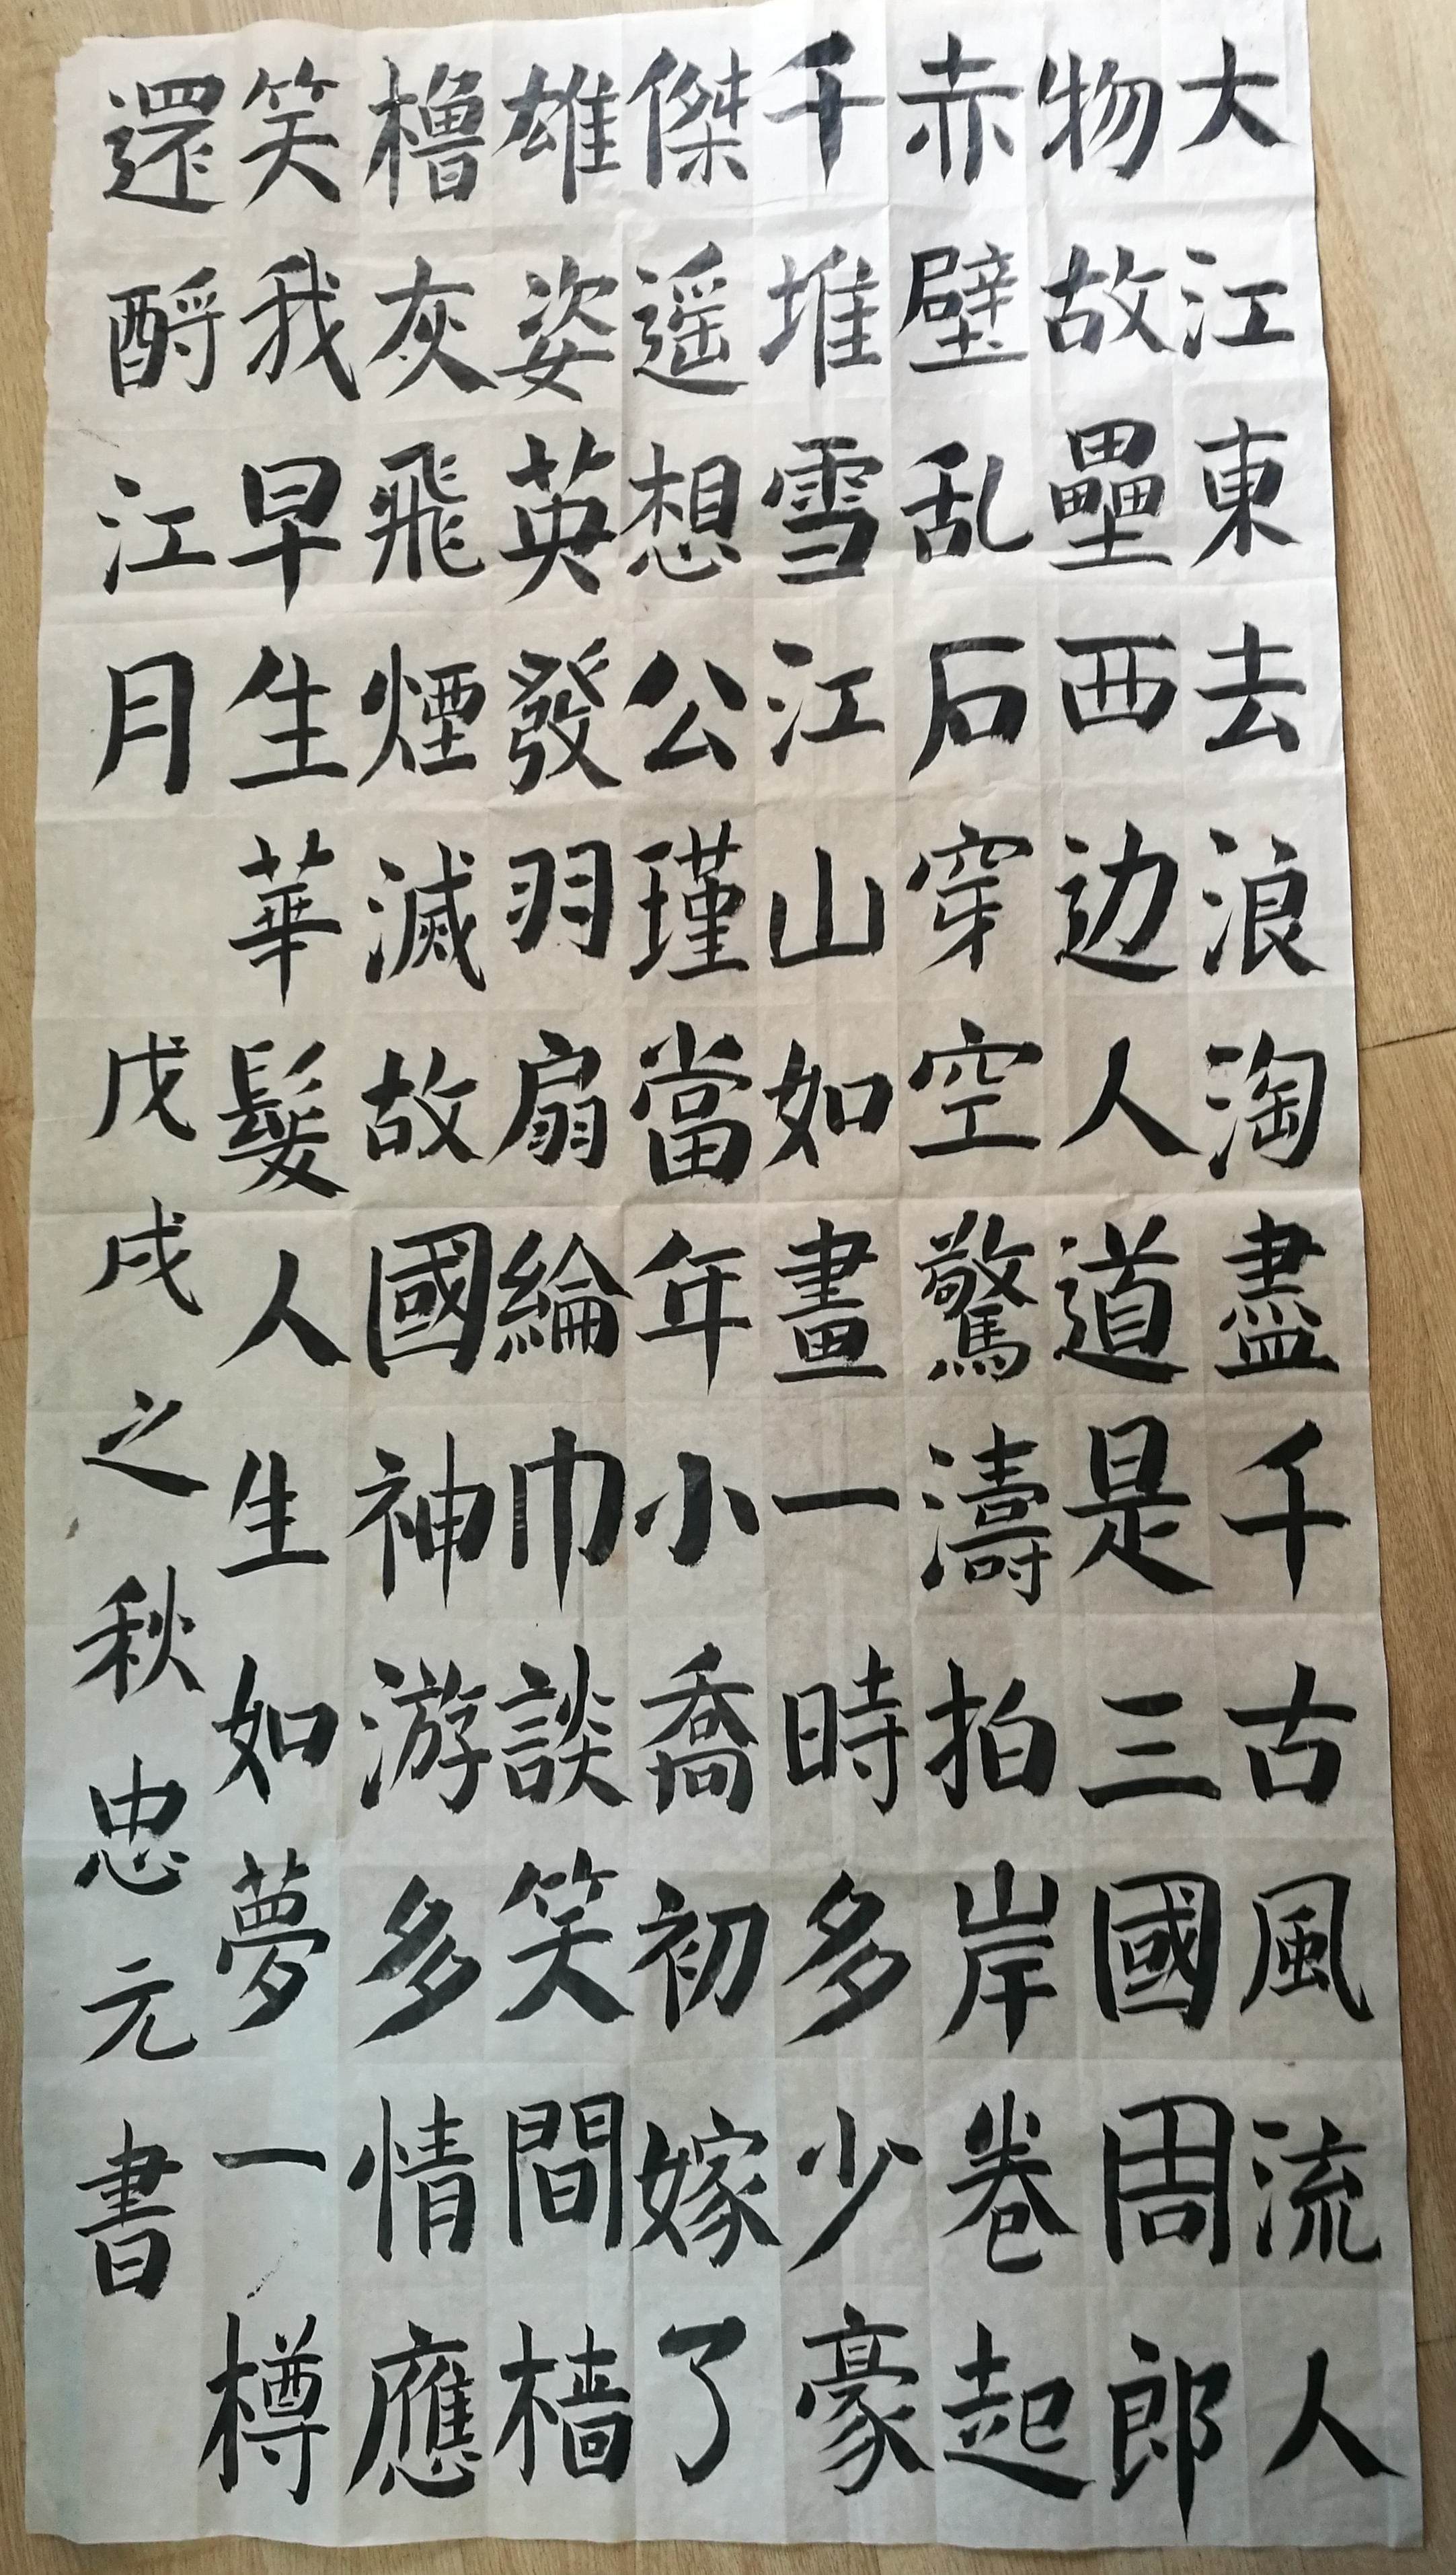 大江東去浪淘盡千古風流人
物故壘西边人道是三國周郎
赤壁乱石穿空驚濤拍岸卷起
千堆雪江山如畫一時多少豪
傑遥想公瑾當年小喬初嫁了
雄姿英發羽扇綸巾談笑間檣
櫓灰飛煙滅故國神游多情應
笑我早生華髮人生如夢一樽
還酹江月 戊戌之秋忠元書